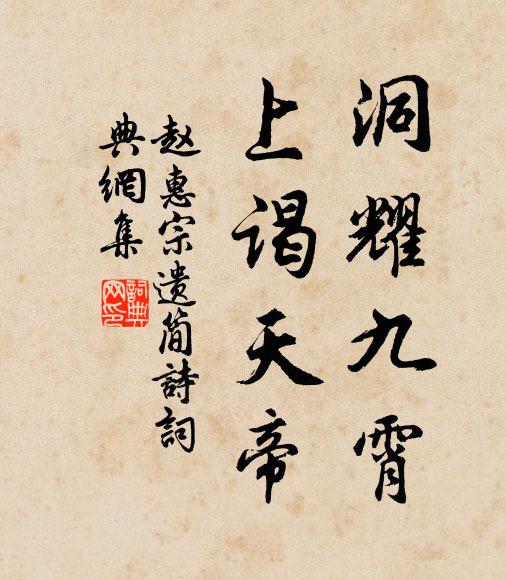 洞耀九霄
上谒天帝
赵惠宗遗简詩詞
典網集
詞典
网印